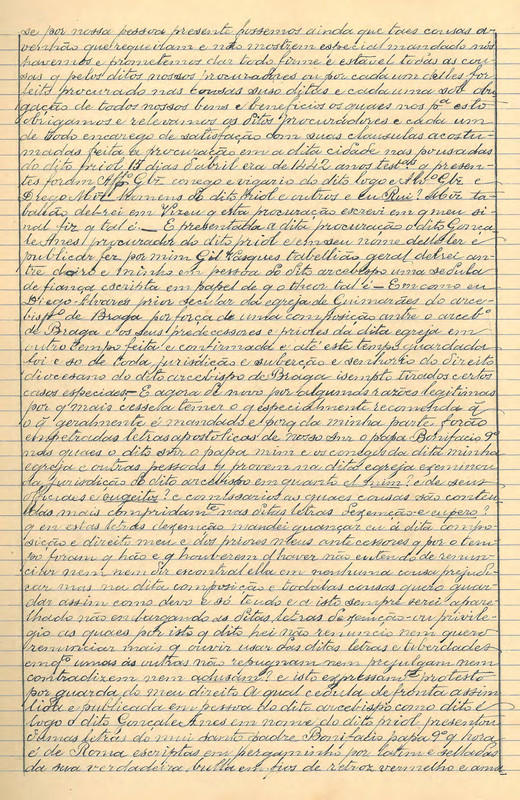 se por nossa pessoa presente fossemos ainda que taes cousas a-
venhão que requeviam e não mostrem especial mandado nos
havemos e prometemos dar todo forme e estavel todas as cou-
sas q pelos ditos nossos procuradores ou por cada um delles for
feito procurado nas cousas suso ditas e cada uma sob obri
gação de todos nossos bens e beneficios os quaes nos pª esto
obrigamos e relevamos os ditos procuradores e cada um
de todo encarego de satisfação com suas clausulas acostu-
madas feita a procuração em a dita cidade nas pousadas
do dito priol 15 dias d'abril era de 1442 annos testas q presen-
tes foram Afº Glz conego e vigario do dito logo e Glz e
Diego Miz homens do dito priol e outros e eu Rui? Miz ta-
balião del-rei em Vizeu q esta procuração escrevi em q meu si-
nal fiz q tal é — E presentada a dita procuração o dito Gonça-
le Anes procurador do dito priol e em seu nome delle ler e
publicar fez por mim Gil Vasques tabellião geral del rei an-
tre doiro e minho em pessoa do dito arcebispo uma sedula
de fiança escrista em papel de q o theor tal é — Em como eu
Diego Alvares prior secular da egreja de Guimarães do arce-
bispdo de Braga por força de uma composição antre o arcebº
de Braga e os seus predecessores e priores da dita egreja em
outro tempo feita e confirmada e até este tempo guardada
foi e so de toda jurisdição e suberção e senhorio do direito
diocesano do dito arcebispo de Braga isempto tirados certos
casos especiaes — E agora de novo por algumas razões legitimas
por q mais cessela temer o q especialmente recomenda q
o q geralmente é mandado e porq da minha parte forão
empetradas letras apostolicas de nosso snr o papa Bonifacio 9º
nas quaes o dito snr o papa mim e os conegos da dita minha
egreja e outras pessoas q provem na dita egreja exeminou
da jurisdição do dito arcebispo em quanto el mim? e de seus
officiaes e sugeitos? e comissarios as quaes cousas são conteu
das mais compridamte nas ditas letras d'exemção e cupero?
q em estas letras d'exemção mandei guançar cu á dita compo-
sição e direito meu e dos priores meus antecessores q por o tem-
po foram q hão e q houverem d'haver não entendo de renun-
ciar nem nem dir escontral ella em nenhuma cousa prejudi-
car mais na dita composição e todalas cousas quero guar
dar assim como devo e só tendo e a isto sempre serei apare
lhado não embargando as ditas letras d'exemção ou privile-
gio as quaes por isto q dito hei não renuncio nem quero
renunciar mais q ouvir usar das ditas letras e liberdades
emqto umas ás outras não repugnam nem prejulgam nem
contradizem nem adusam? e isto expressamte protesto
por guarda do meu direito A qual cedula de fronta assim
lida e publicada em pessoa do dito arcebispo como dito é
logo o dito Gonçale Anes em nome do dito priol presentou
umas letras do mui santo padre Bonifacio papa 9º q hora
é de Roma escriptas em pergaminho por latim e selladas
da sua verdadeira bulla em fios de retroz vermelho e ama